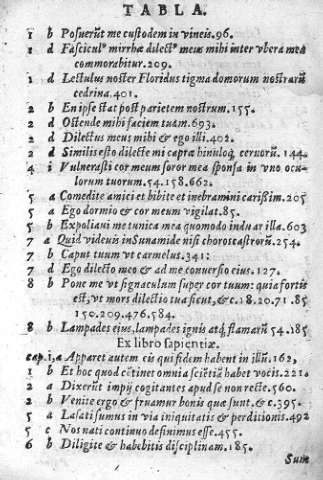 TABLA.
1 b Posuerũt me custodem in vineis.96.
1 d Fascicul⁹ mirrhæ dilect⁹ meus mihi inter vbera mea
commorabitur.209.
1 d Lectulus noster Floridus tigna domorum nostrarũ
cedrina.401.
2 b En ipse stat post parietem nostrum.155.
2 d Ostende mihi faciem tuam.693.
2 d Dilectus meus mihi & ego illi.402.
2 d Similis esto dilecte mi capræ hinuloq; ceruorũ. 144.
4 i Vulnerasti cor meum soror mea sponsa in vno ocu-
lorum tuorum.54.158.662.
5 a Comedite amici et bibite et inebramini carißim.205
5 a Ego dormio & cor meum vigilat.85.
5 b Expoliani me tunica mea quomodo induar illa.603
7 a Quid videuis in Sunamide nisi choros castrorũ.254.
7 b Caput tuum vt carmelus.341:
7 d Ego dilecto meo & ad me conuersio eius.127.
8 b Pone me vt signaculum super cor tuum: quia fortis
est, vt mors dilectio tua sicut, & c.18.20.71.85
150.209.476.584.
8 b Lampades eius, lampades ignis atq; flamarũ 54.185
Ex libro sapientiæ.
cap.1,a Apparet autem eis qui fidem habent in illũ.162,
1 b Et hoc quod cõtinet omnia sciẽtiã habet vocis.221.
2 a Dixerũt impij cogitantes apud se non recte.560.
2 b Venite ergo & fruamur bonis quæ sunt.& c.395.
5 a Lasati sumus in via iniquitatis & perditionis.492
5 c Nos nati continuo desinimus esse.455.
6 b Diligite & habebitis disciplinam.185.
Sum